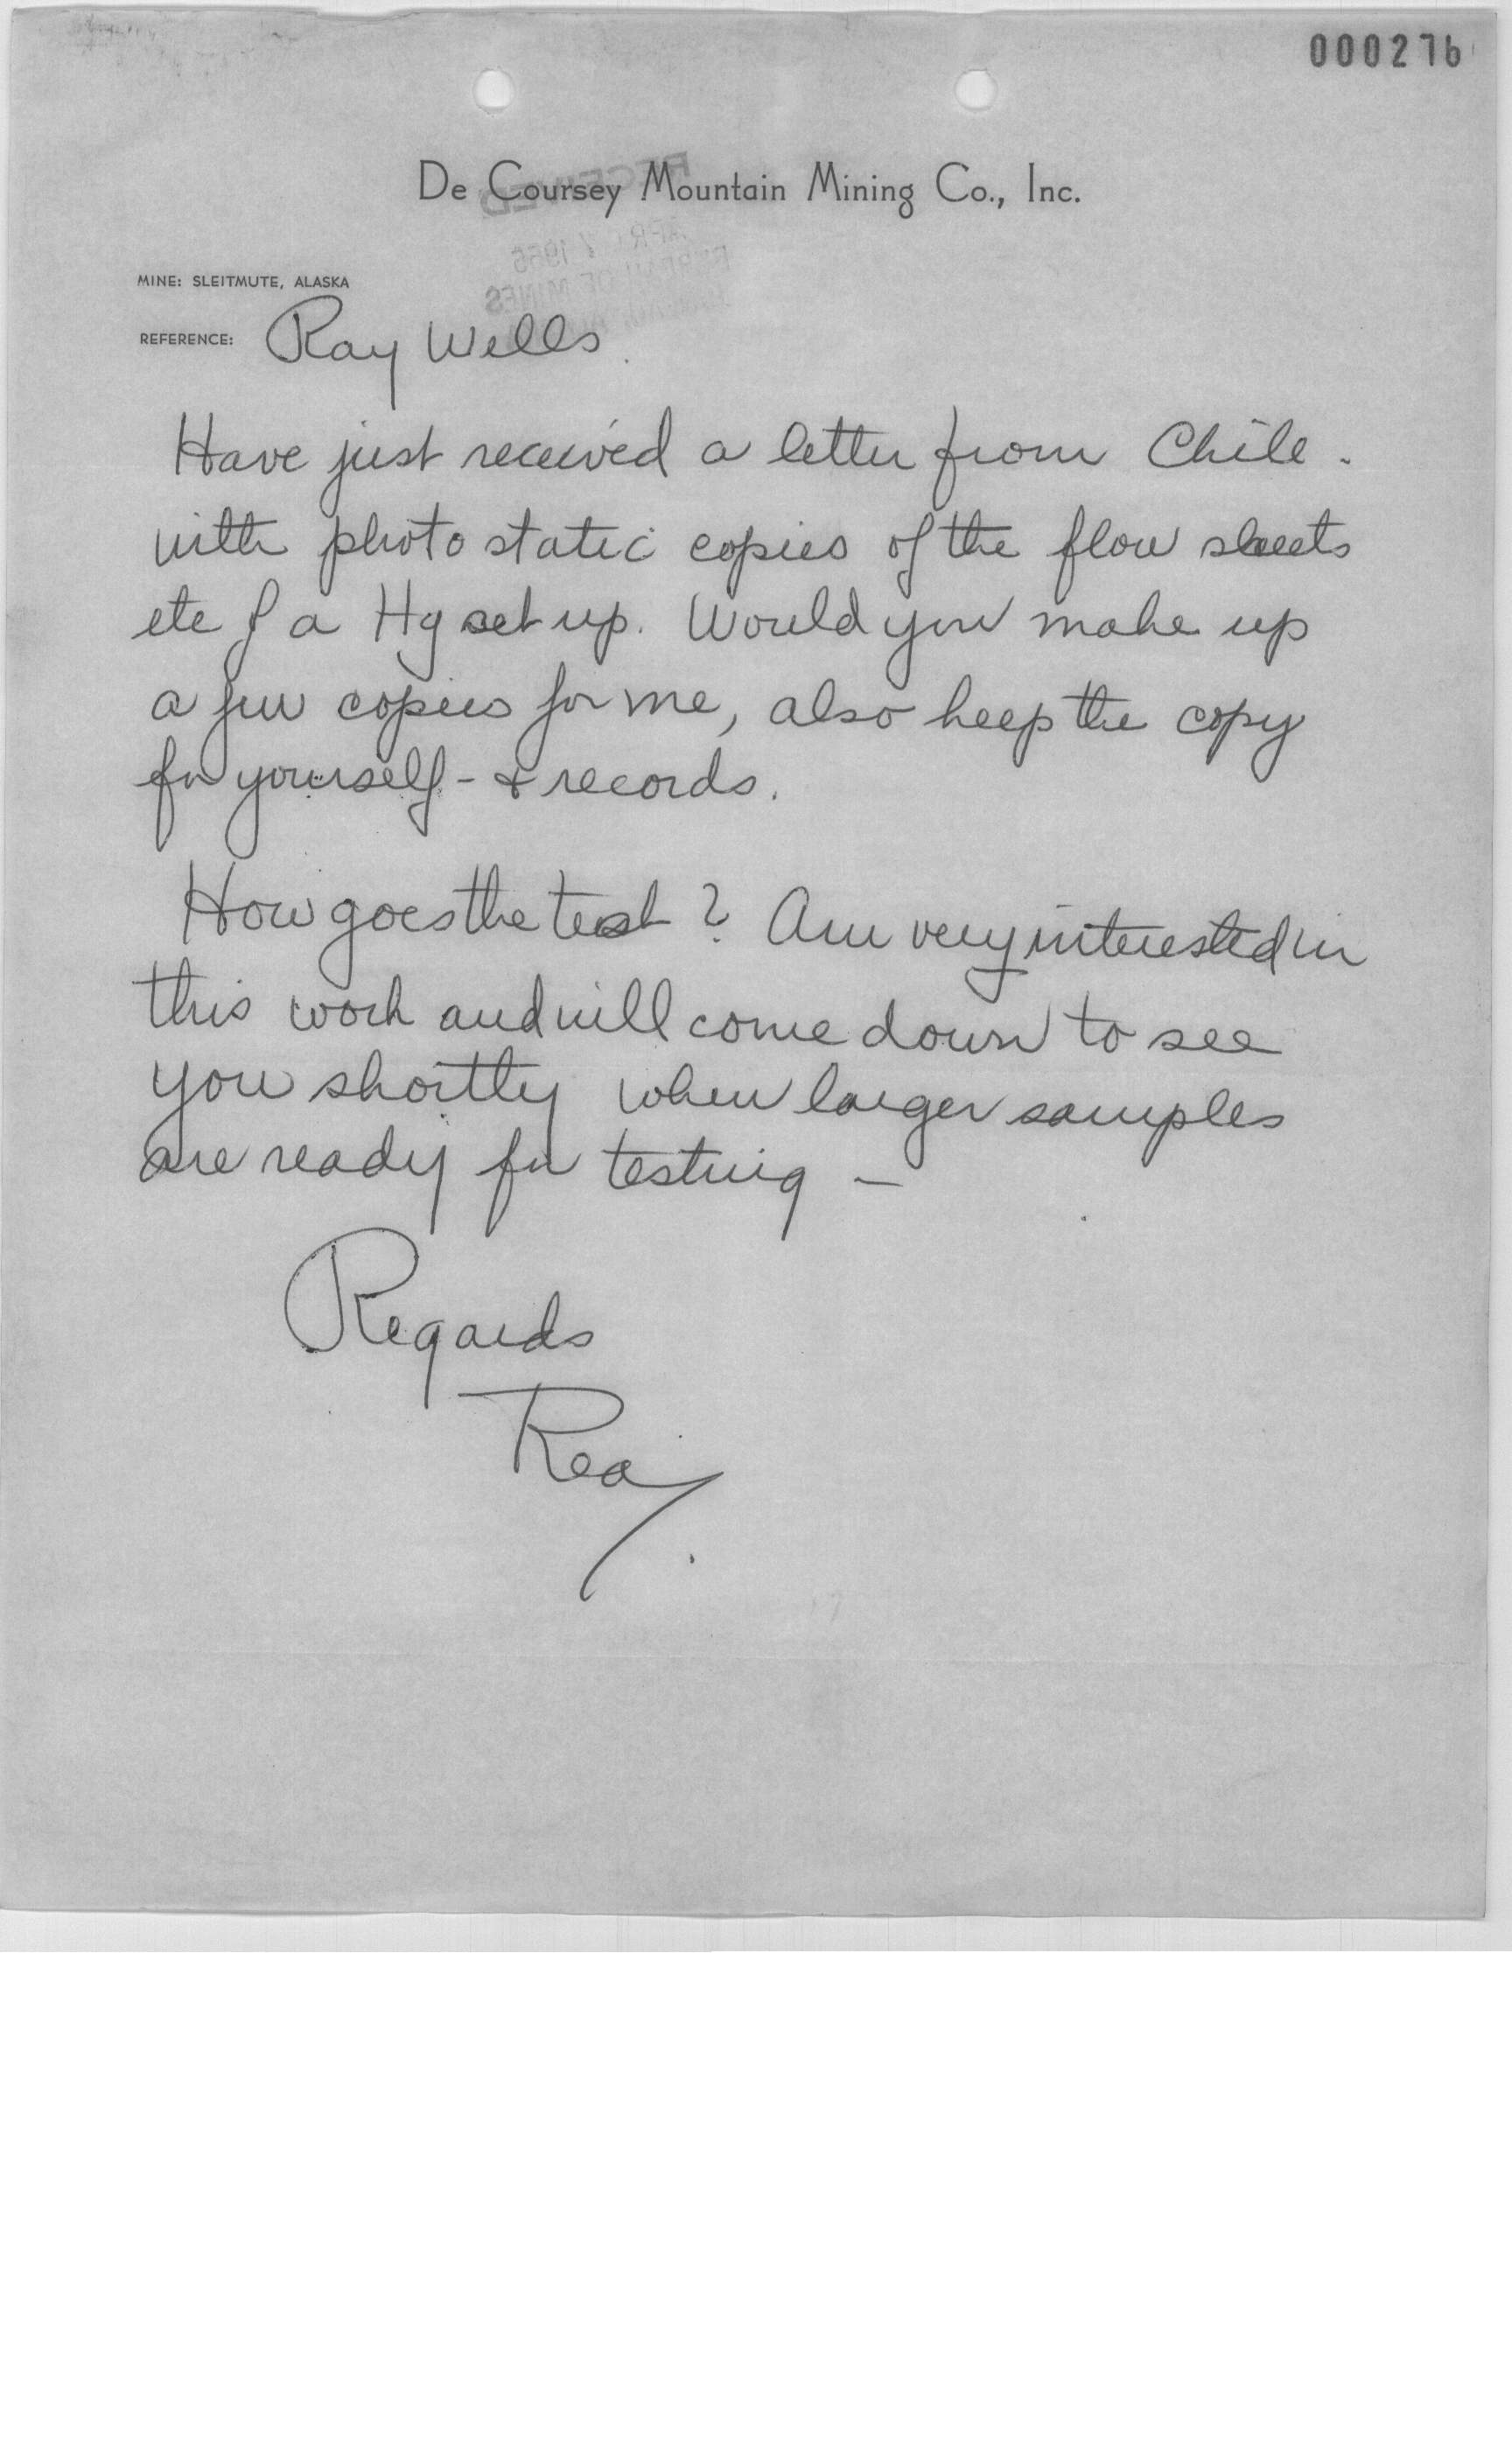 000276
De Coursey Mountain Mining Co., Inc.
RECEIVED
MINE: SLEITMUTE, ALASKA
REFERENCE: Ray Wells
Have just received a letter from Chile.
with photo static copies of the flow sheets
etc of a Hg set up. Would you make up
a few copies for me, also keep the copy
for yourself - & records.
How goes the test? Am very interested in
this work and will come down to see
you shortly when larger samples
are ready for testing -
Regards